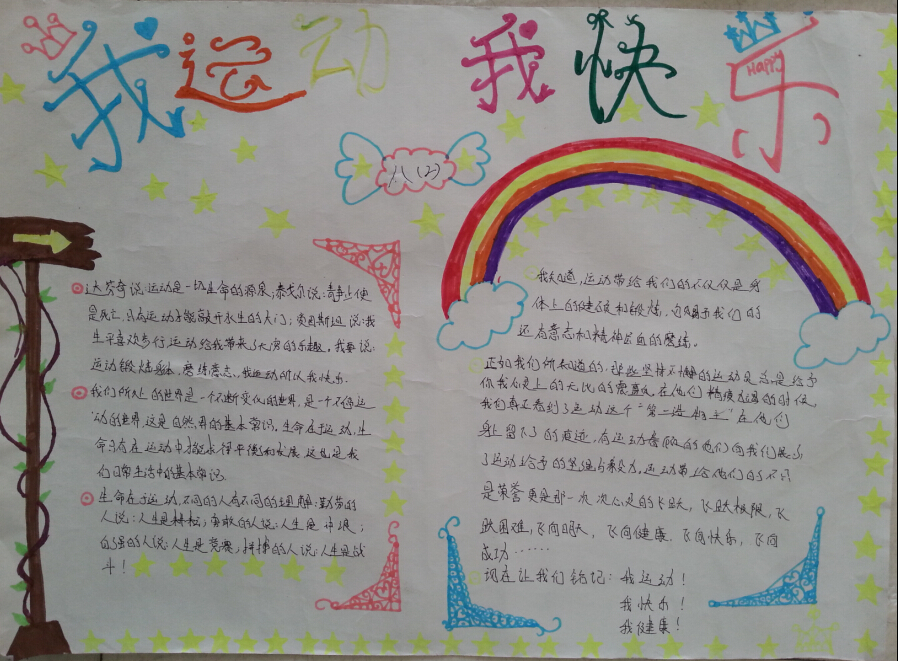 我运动 我快乐
Happy
八(2)
达芬奇说:运动是一切生命的源泉,泰戈尔说:静止便
是死亡,只有运动才能敲开永生的大门;爱因斯坦说:我
生平喜欢步行,运动给我带来了无穷的乐趣。我要说:
运动锻炼身体,磨练意志,我运动所以我快乐.
我们所处的世界是一个不断变化的世界,是一个不停运
动的世界,这是自然界的基本常识,生命在于运动,生
命只有在运动中才能求得平衡和发展,这也是我
们日常生活中的基本常识.
生命在于运动,不同的人有不同的理解:勤劳的
人说:人生是耕耘;勇敢的人说:人生是
自强的人说:人生是竞赛,拼搏的人说:人生是战
斗!
我知道,运动带给我们的不仅仅是身
体上的健康和锻炼,
还有意志和精神层面的磨练。
正如我们所知道的,那些坚持不懈的运动员总是给予
你我心灵上的无比的震撼,在他们 的时候
我们真正看到了运动这个"第二造物主"在他们
身上留下了的痕迹,有运动 的他们向我们展示
了运动给予的坚强与毅力,运动带给他们的不只
是荣誉更是那一次次心灵的飞跃,飞跃极限,飞
跃困难,飞向明天,飞向健康,飞向快乐,飞向
成功……
现在让我们铭记:我运动!
我快乐!
我健康!